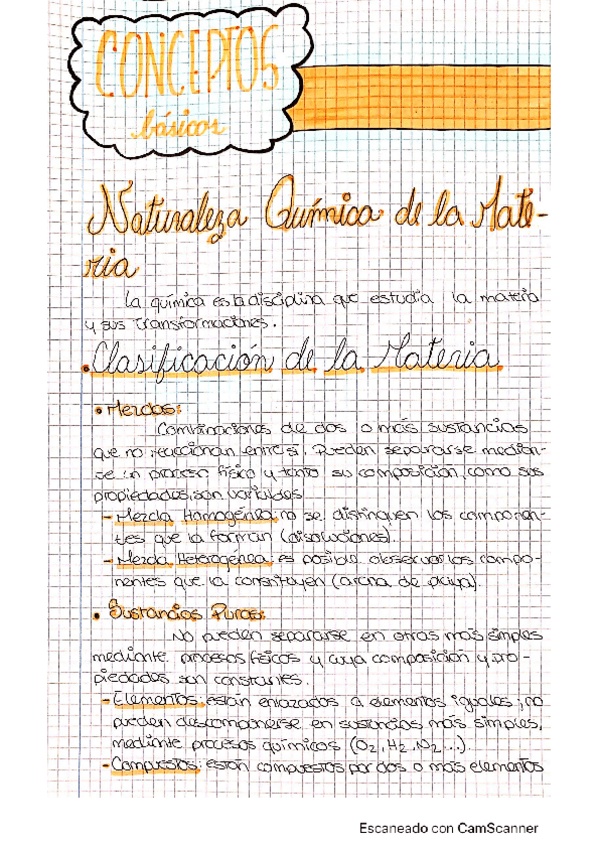 CONCEPTOS
básicos
Naturaleza Química de la Mate-
ria
La química es la disciplina que estudia la materia
y sus transformaciones.
• Clasificación de la Materia
• Mezclas:
Combinaciones de dos o más sustancias
que no reaccionan entre sí. Pueden separarse median-
te un proceso físico y tanto su composición, como sus
propiedades, son variables.
- Mezcla Homogénea: no se distinguen los componen-
tes que la forman (disoluciones).
- Mezcla Heterogénea: es posible observar los compo-
nentes que la constituyen (arena de playa).
• Sustancias Puras:
No pueden separarse en otras más simples
mediante procesos físicos y cuya composición y pro-
piedades son constantes.
- Elementos: están enlazados a elementos iguales, no
pueden descomponerse en sustancias más simples,
mediante procesos químicos (O₂, H₂, N₂...).
- Compuestos: están compuestos por dos o más elementos
Escaneado con CamScanner